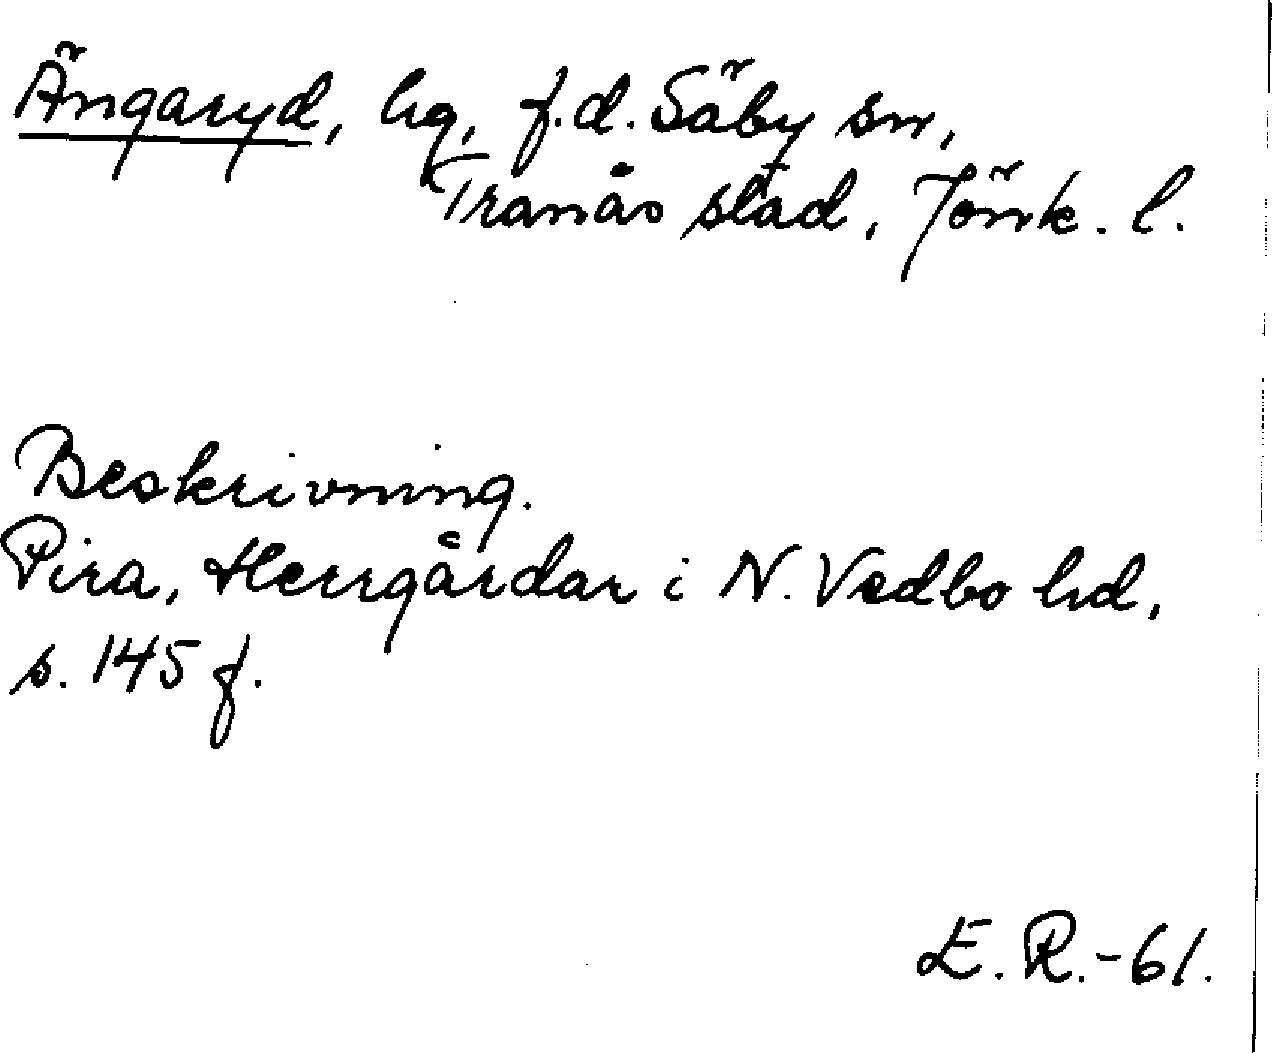 Ängaryd, hg, f.d. Säby sn,
Tranås stad, Jönk. l.
Beskrivning.
Pira, Herrgårdar i N. Vedbo hd,
s. 145 f.
E. R.-61.